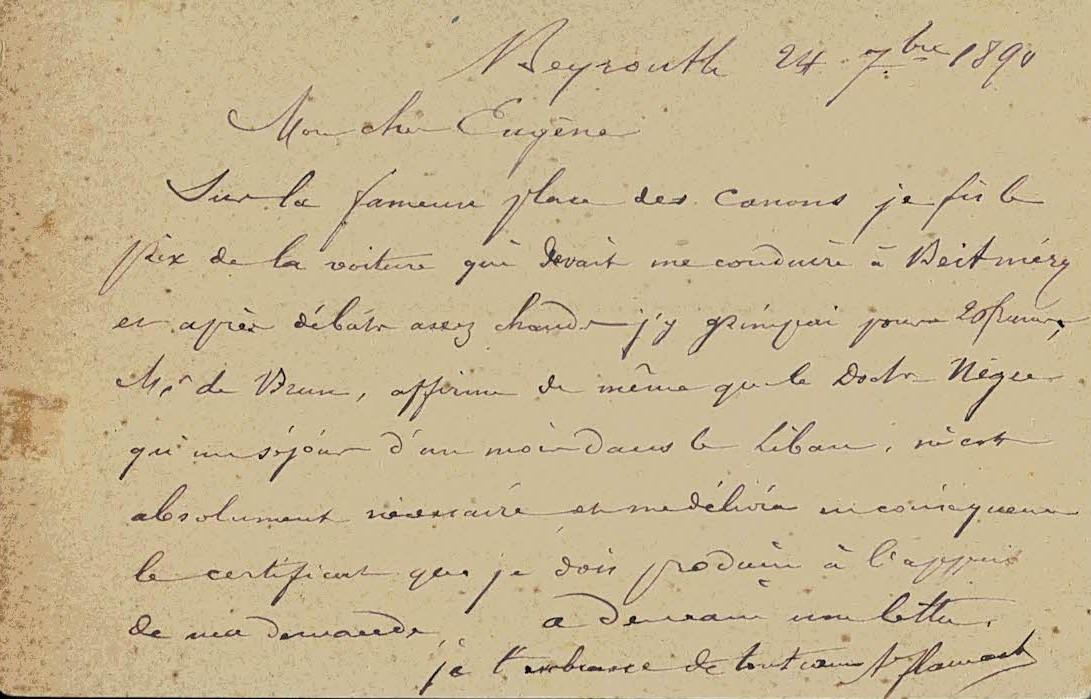 Beyrouth 24 7bre 1890
Mon cher Eugène
Sur la fameuse place des Canons je fis le
prix de la voiture qui devait me conduire à Beitméry
et après débats assez chauds j'y grimpai pour 20 francs,
Mr de Brun, affirme de même que le Doctr Nègre
qu'un séjour d'un mois dans le Liban, m'est
absolument nécessaire et me délivra en conséquence
le certificat que je dois produire à l'appui
de ma demande. a demain une lettre.
je t'embrasse de tout coeur